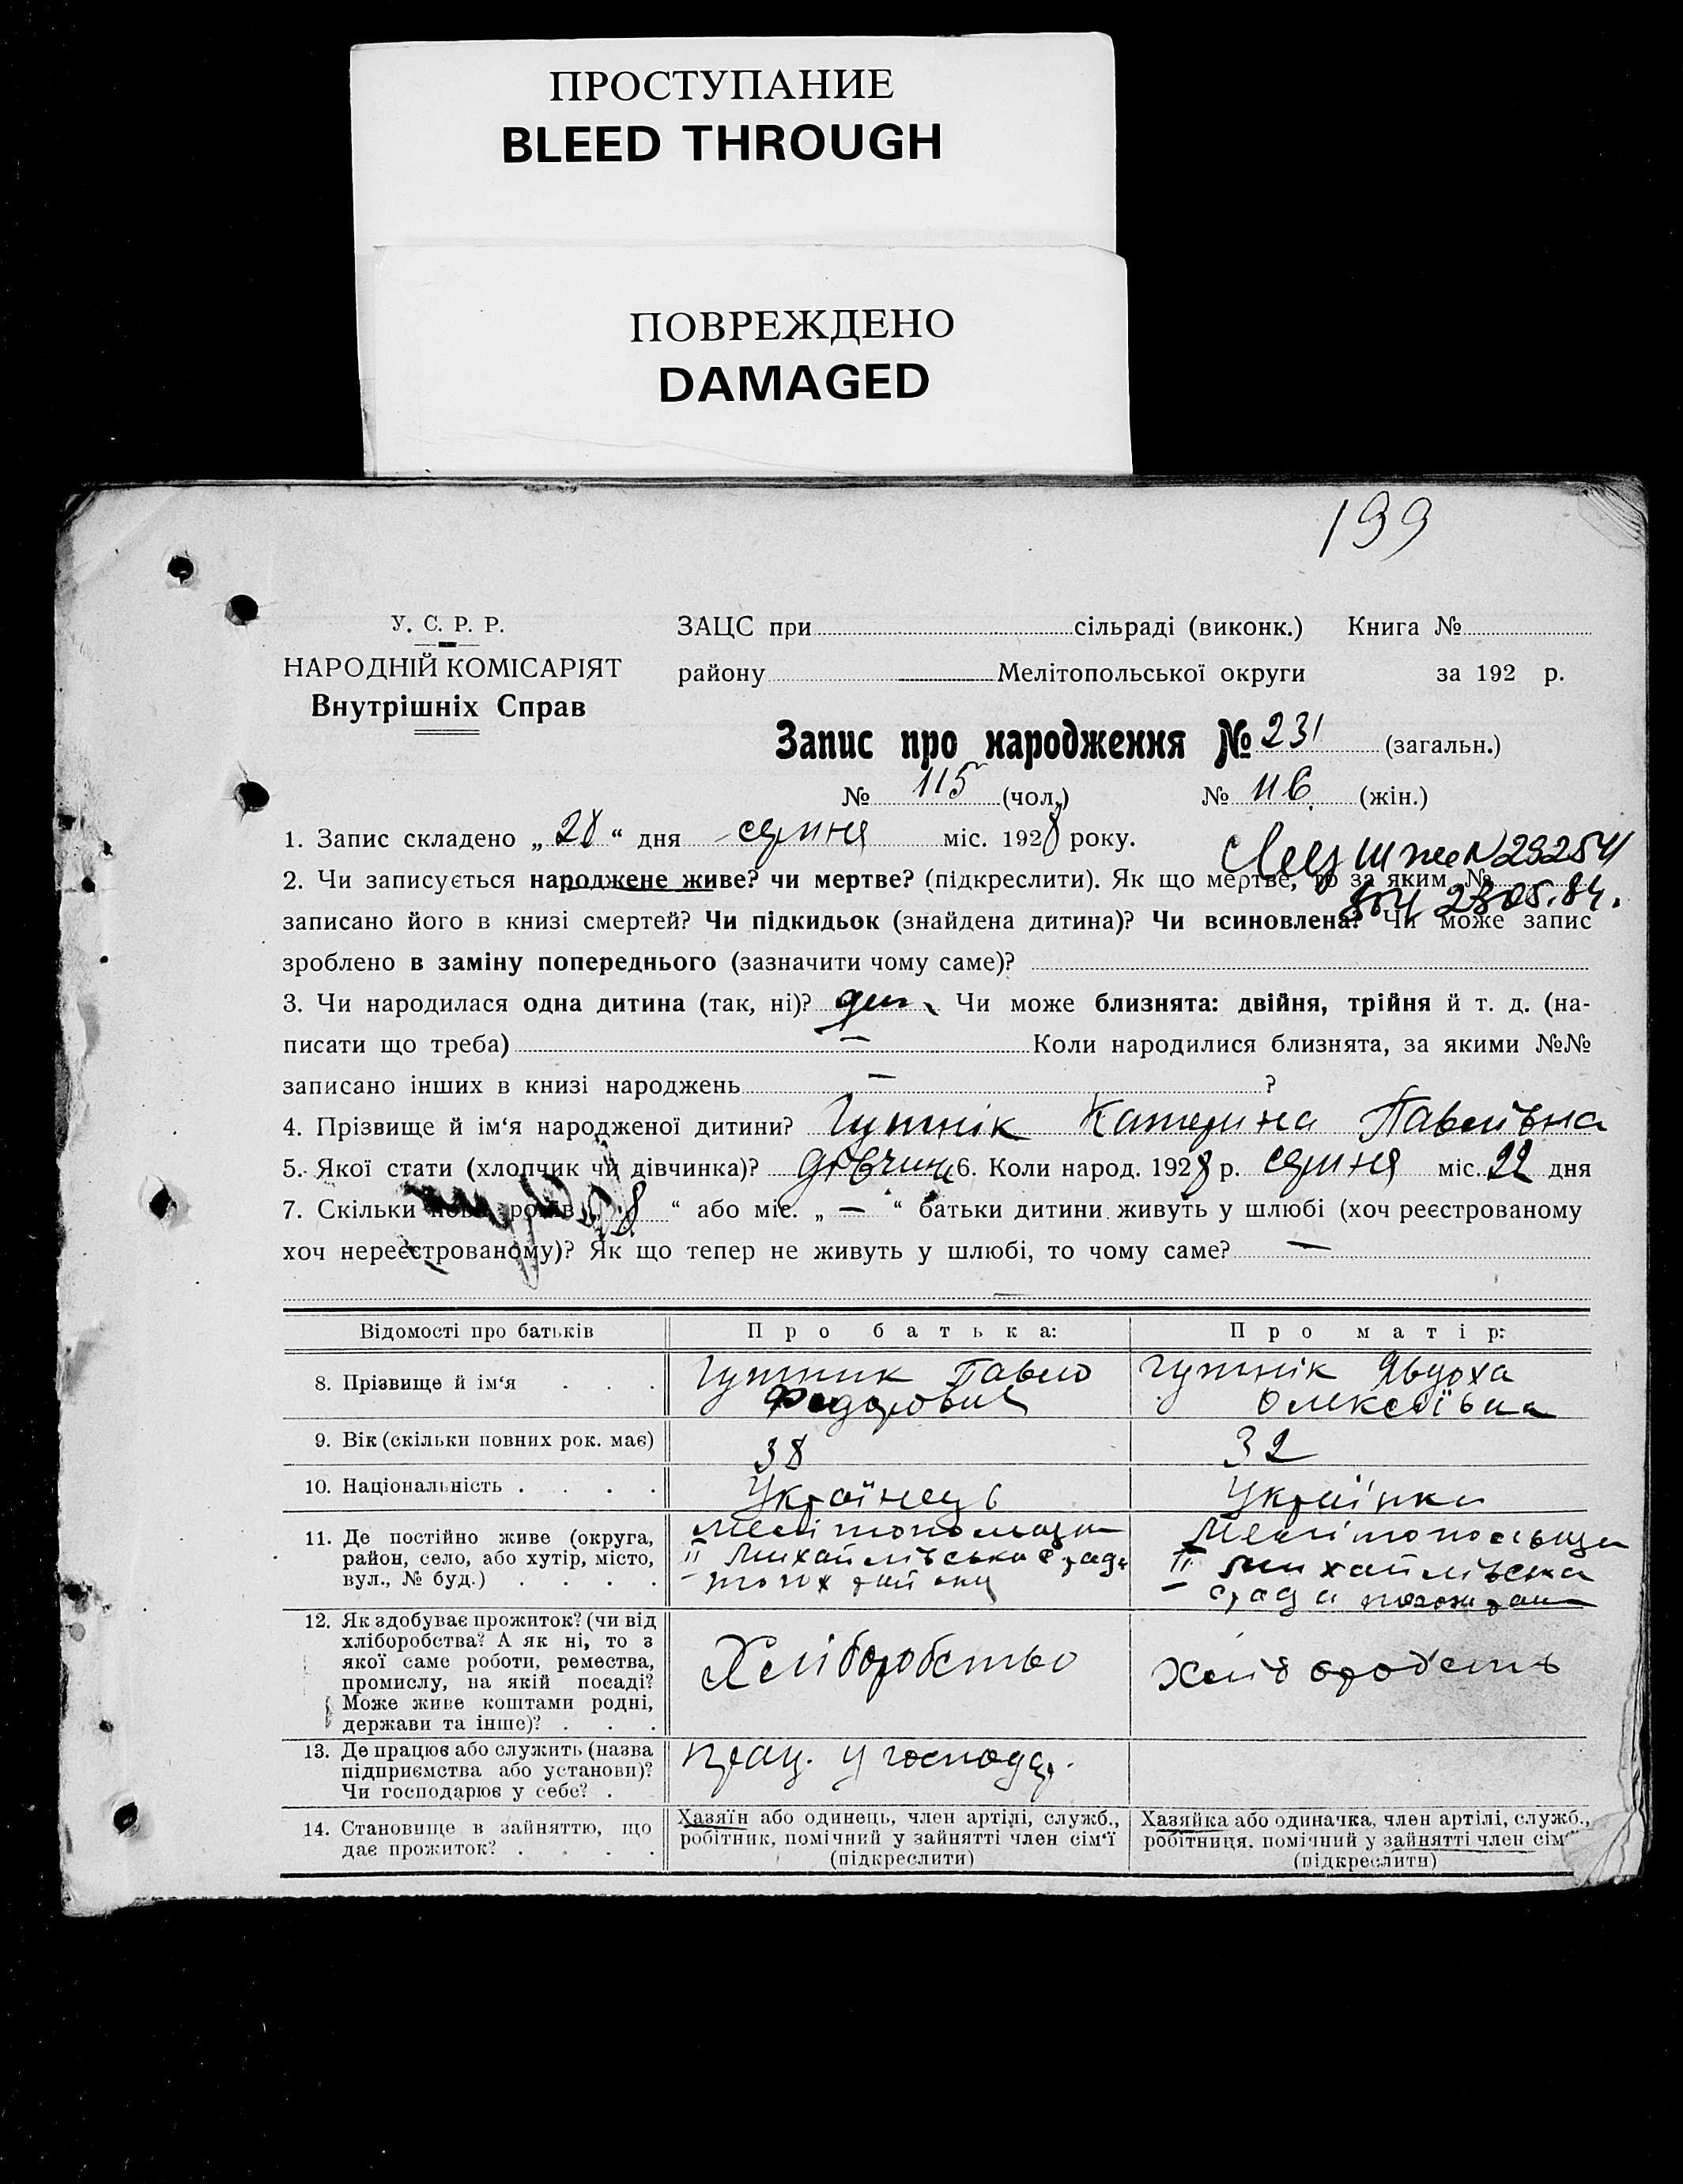 ПРОСТУПАНИЕ
BLEED THROUGH
ПОВРЕЖДЕНО
DAMAGED
199
У. С. Р. Р.
НАРОДНІЙ КОМІСАРІЯТ
Внутрішніх Справ
ЗАЦС при сільраді (виконк.) Книга №
району Мелітопольської округи за 192 р.
Запис про народження № 231 (загальн.)
№ 115 (чол.) № 116 (жін.)
1. Запис складено „28“ дня серпня міс. 1928 року.
2. Чи записується народжене живе? чи мертве? (підкреслити). Як що мертве, то за яким №
23.05.84.
записано його в книзі смертей? Чи підкидьок (знайдена дитина)? Чи всиновлена? Чи може запис
зроблено в заміну попереднього (зазначити чому саме)?
3. Чи народилася одна дитина (так, ні)? Чи може близнята: двійня, трійня й т. д. (на-
писати що треба) — Коли народилися близнята, за якими №№
записано інших в книзі народжень — ?
4. Прізвище й ім‘я народженої дитини? Гутнік Катерина Павлівна
5. Якої стати (хлопчик чи дівчинка)? дівчина 6. Коли народ. 1928 р. серпня міс. 22 дня
7. Скільки повн. років „8“ або міс. „—“ батьки дитини живуть у шлюбі (хоч реєстрованому
хоч нереєстрованому)? Як що тепер не живуть у шлюбі, то чому саме? —
Відомості про батьків
Про батька:
Про матір:
8. Прізвище й ім‘я . . .
Гутник Павло
Федорович
Гутнік Явдоха
Олексіївна
9. Вік (скільки повних рок. має)
38
32
10. Національність . . . .
Українець
Українка
11. Де постійно живе (округа,
район, село, або хутір, місто,
вул., № буд.) . . . .
Мелітопольщи
II Михайлівська с рада
Мелітопольщи
II Михайлівська
с рада
12. Як здобуває прожиток? (чи від
хліборобства? А як ні, то з
якої саме роботи, ремества,
промислу, на якій посаді?
Може живе коштами родні,
держави та інше)? . . .
Хліборобство
Хліборобств
13. Де працює або служить (назва
підприємства або установи)?
Чи господарює у себе? .
прац. у господар.
14. Становище в зайняттю, що
дає прожиток? . . . .
Хазяїн або одинець, член артілі, служб.,
робітник, помічний у зайнятті член сім‘ї
(підкреслити)
Хазяйка або одиначка, член артілі, служб.,
робітниця, помічний у зайнятті член сім‘ї
(підкреслити)